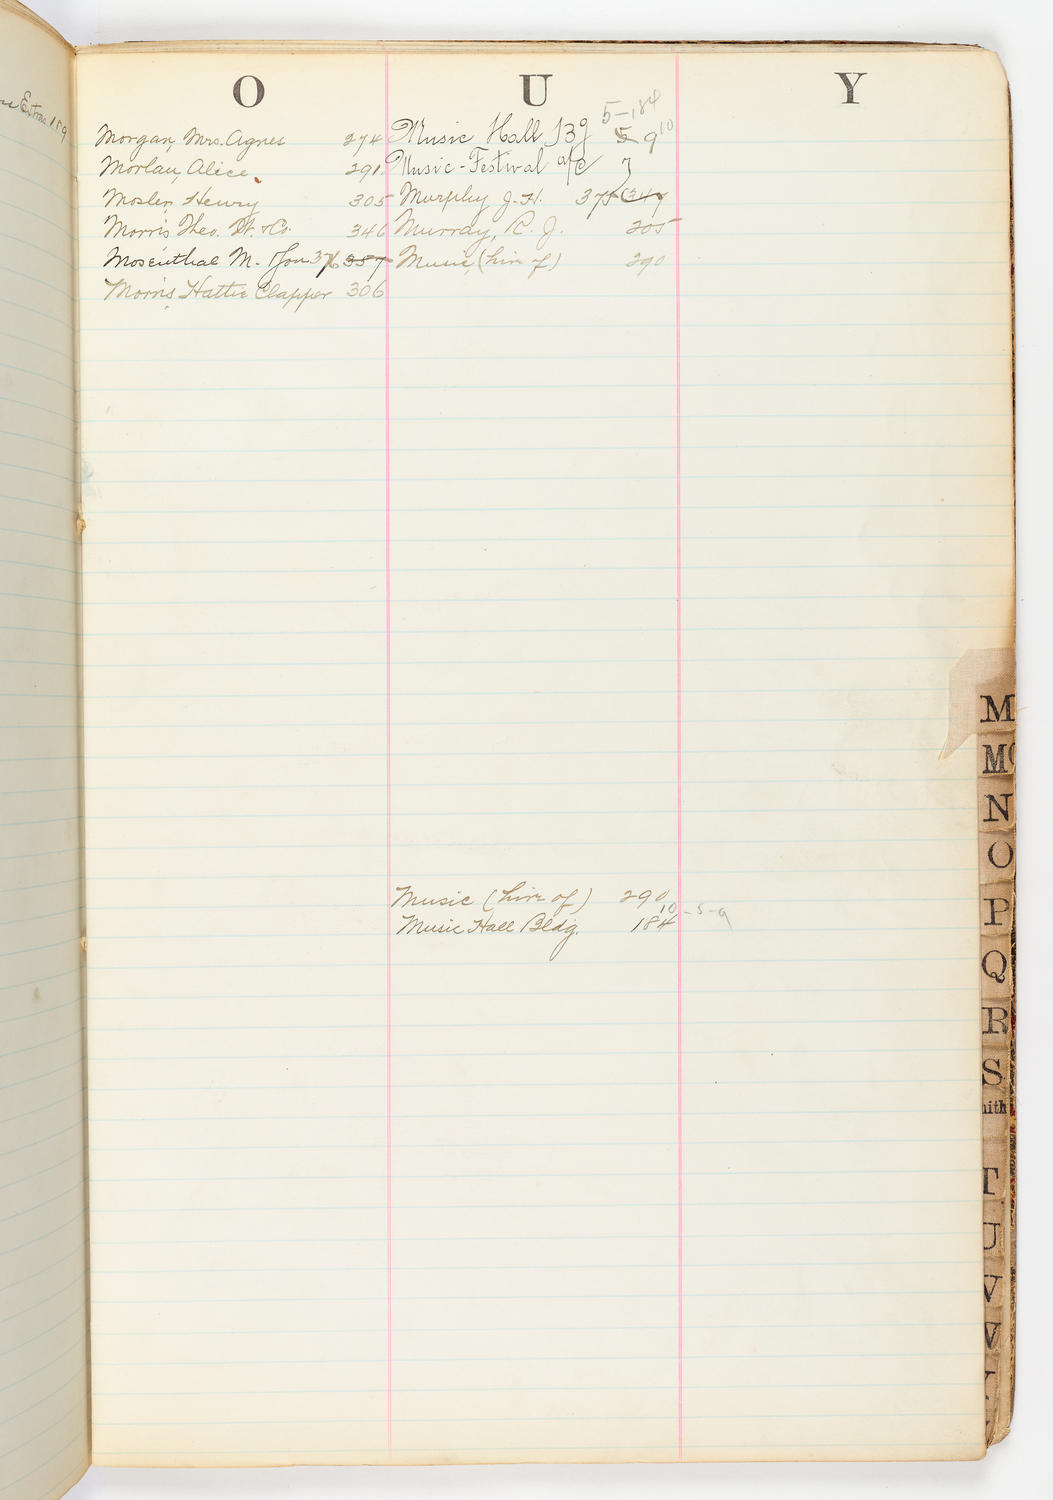 Extras 189
O
Morgan, Mrs. Agnes 274
Morlau, Alice. 291
Mosler, Henry 305
Morris Theo. W. & Co. 346
Mosenthal M. 376 357
Morris, Hattie Clapper 306
U
5-184
Music Hall Bg 5 9 10
Music-Festival a/c 7
Murphy J. H. 375 347
Murray, R. J. 205
Music (hire of) 290
Music (hire of) 290
10-5-9
Music Hall Bldg. 184
Y
M
Mc
N
O
P
Q
R
S
T
U
V
W